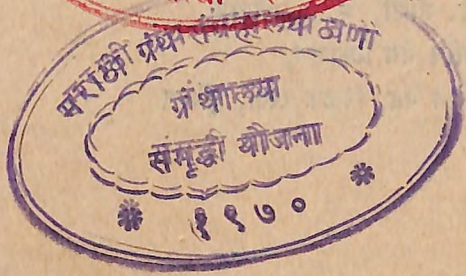 मराठी ग्रंथ संग्रहालय ठाणे
ग्रंथालय
समृद्धी योजना
* १९७० *